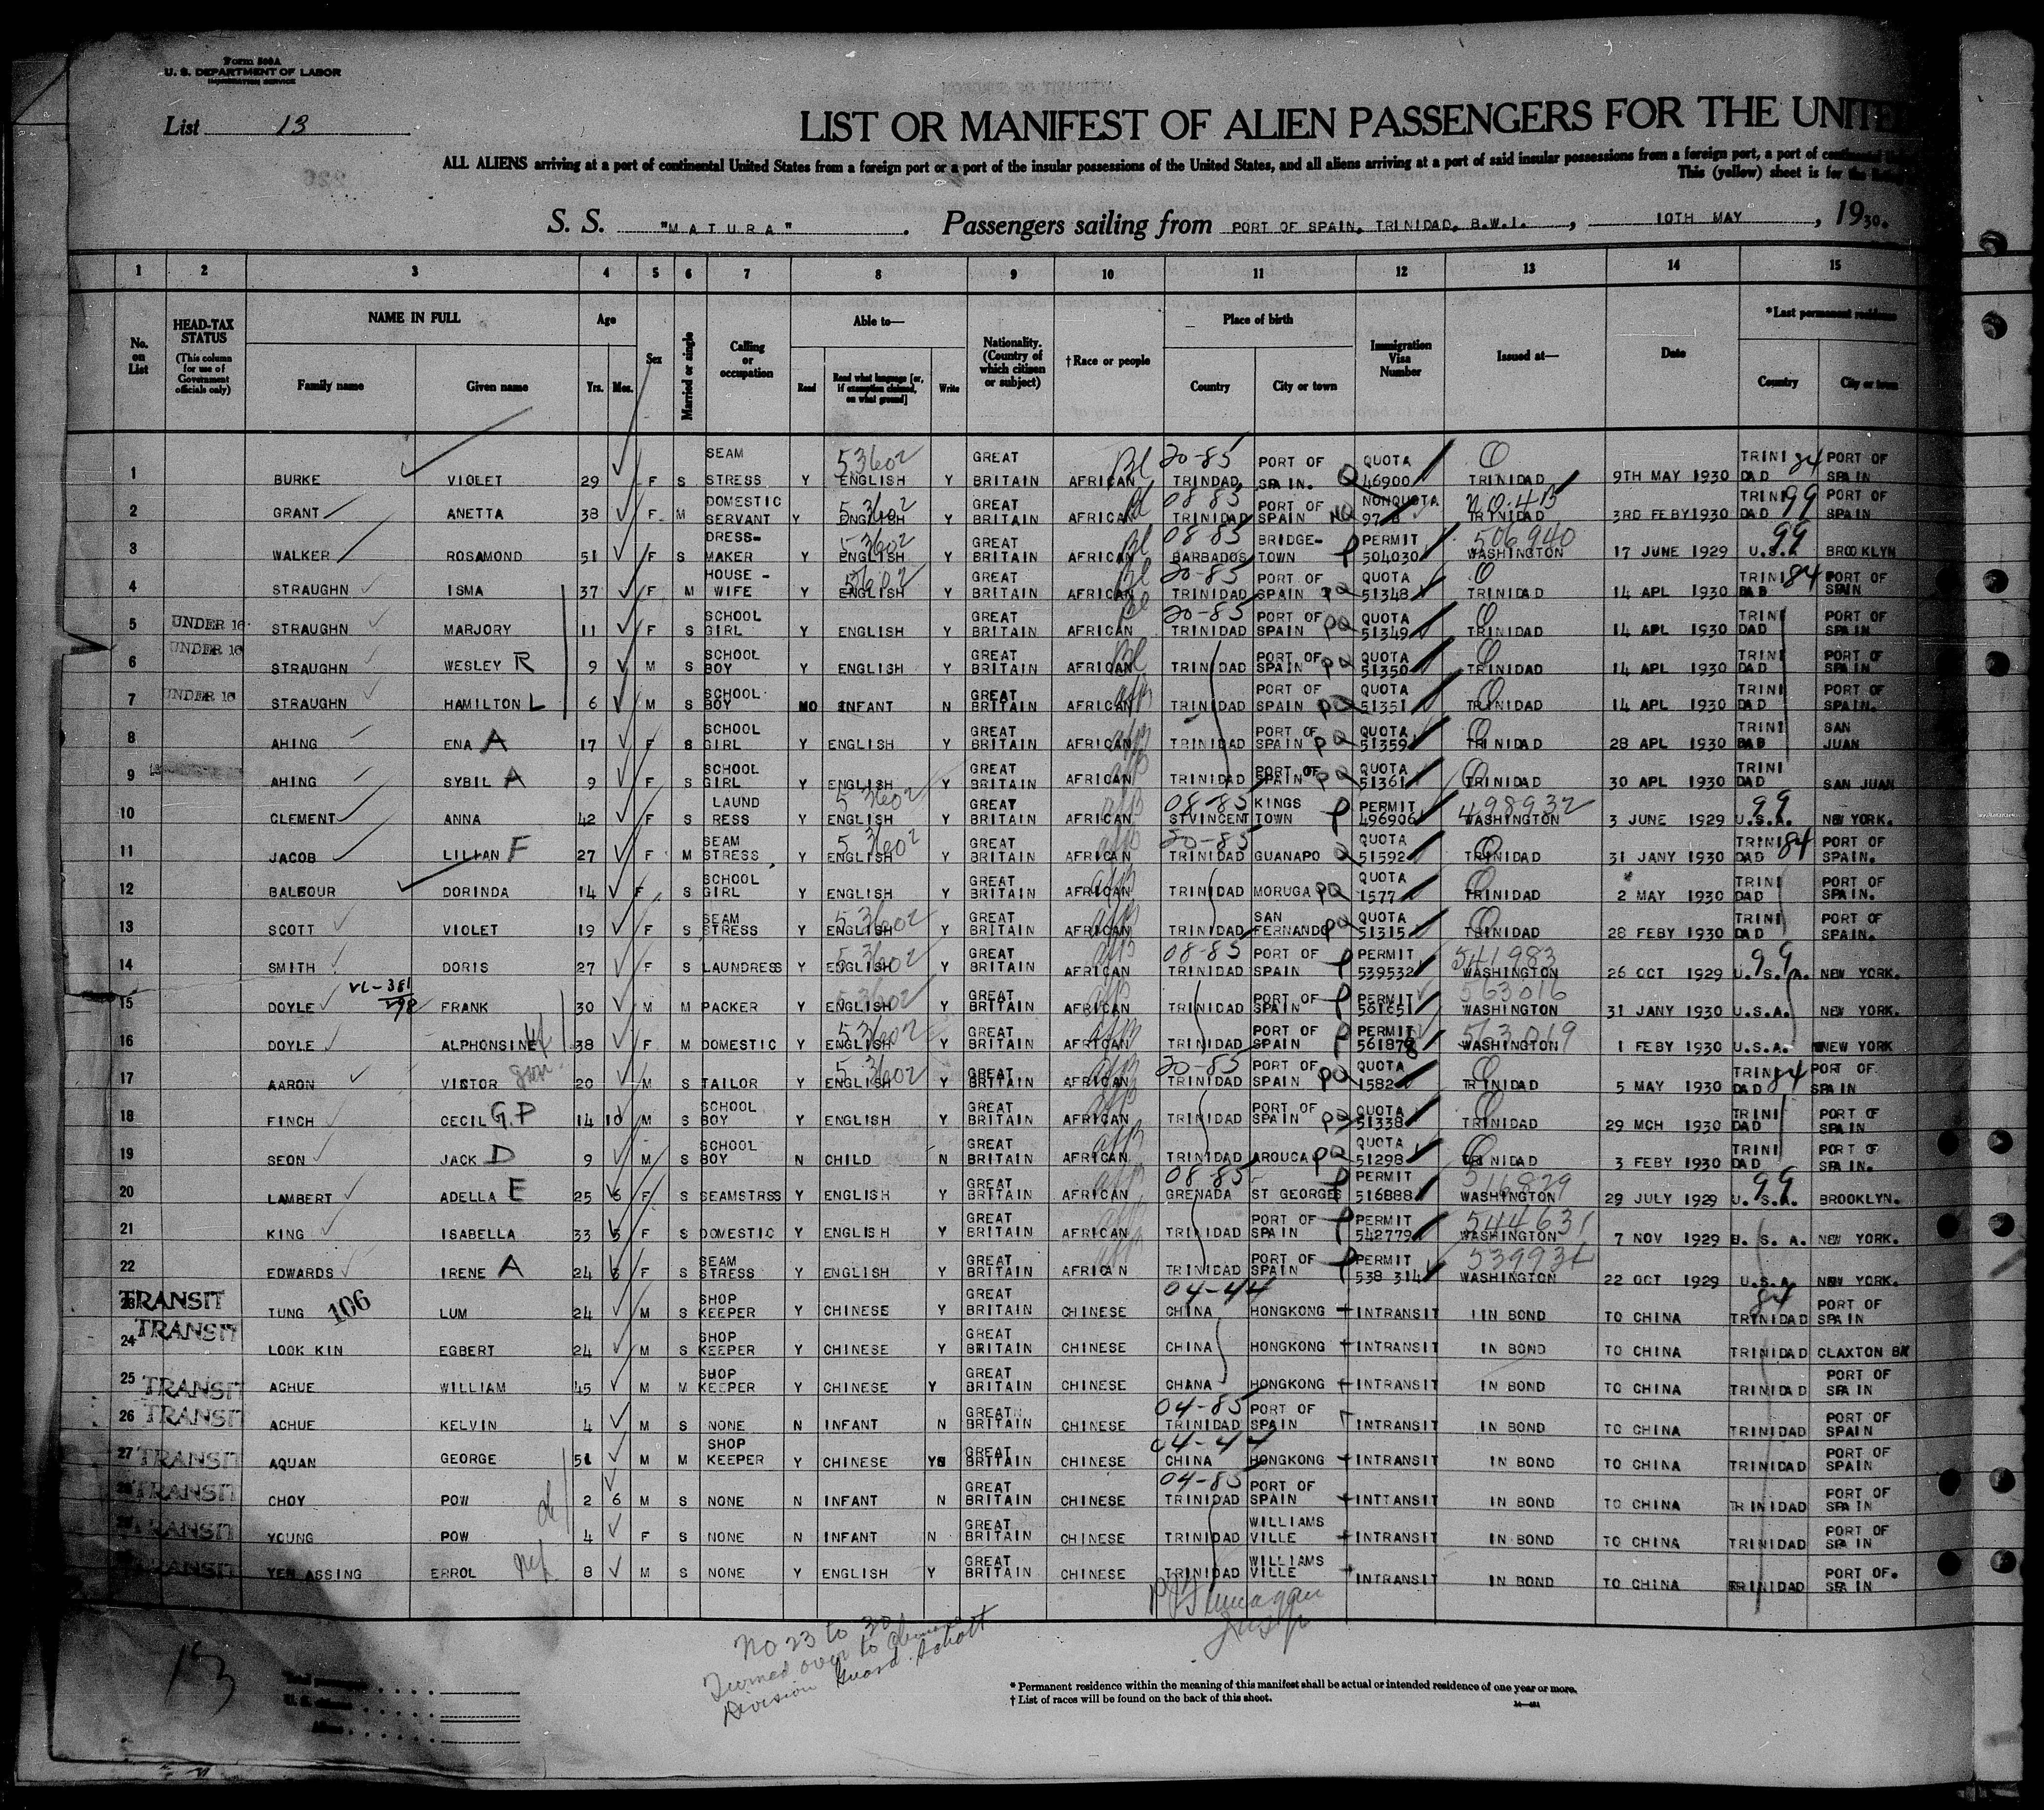 Form 500A
U. S. DEPARTMENT OF LABOR
IMMIGRATION SERVICE
List 13
LIST OR MANIFEST OF ALIEN PASSENGERS FOR THE UNITE
ALL ALIENS arriving at a port of continental United States from a foreign port or a port of the insular possessions of the United States, and all aliens arriving at a port of said insular possessions from a foreign port, a port of
This (yellow) sheet is for the
S. S. "MATURA" . Passengers sailing from PORT OF SPAIN, TRINIDAD, B.W.I. , 10TH MAY , 1930.
1 2 3 4 5 6 7 8 9 10 11 12 13 14 15
No. on List HEAD-TAX STATUS (This column for use of Government officials only) NAME IN FULL Family name Given name Age Yrs. Mos. Sex Married or single Calling or occupation Able to— Read Read what language [or, if exemption claimed, on what ground] Write Nationality. (Country of which citizen or subject) † Race or people Place of birth Country City or town Immigration Visa Number Issued at— Date *Last permanent residence Country City or town
1 BURKE VIOLET 29 F S SEAM STRESS Y 53602 ENGLISH Y GREAT BRITAIN AFRICAN Bl 20-85 TRINDAD PORT OF SPAIN. Q QUOTA 46900 O TRINIDAD 9TH MAY 1930 TRINI DAD 84 PORT OF SPAIN
2 GRANT ANETTA 38 F M DOMESTIC SERVANT Y 53602 ENGLISH Y GREAT BRITAIN AFRICAN Bl 08-85 TRINIDAD PORT OF SPAIN NQ NONQUOTA TRINIDAD 3RD FEBY 1930 TRINI DAD 99 PORT OF SPAIN
3 WALKER ROSAMOND 51 F S DRESS- MAKER Y 53602 ENGLISH Y GREAT BRITAIN AFRICAN Bl 08-85 BARBADOS BRIDGE- TOWN P PERMIT 504030 506940 WASHINGTON 17 JUNE 1929 99 U.S. BROOKLYN
4 STRAUGHN ISMA 37 F M HOUSE - WIFE Y 53602 ENGLISH Y GREAT BRITAIN AFRICAN Bl 20-85 TRINIDAD PORT OF SPAIN PQ QUOTA 51348 O TRINIDAD 14 APL 1930 TRINI DAD 84 PORT OF SPAIN
5 UNDER 16 STRAUGHN MARJORY 11 F S SCHOOL GIRL Y ENGLISH Y GREAT BRITAIN AFRICAN Bl 20-85 TRINIDAD PORT OF SPAIN PQ QUOTA 51349 O TRINIDAD 14 APL 1930 TRINI DAD PORT OF SPAIN
6 UNDER 16 STRAUGHN WESLEY R 9 M S SCHOOL BOY Y ENGLISH Y GREAT BRITAIN AFRICAN Bl TRINIDAD PORT OF SPAIN PQ QUOTA 51350 O TRINIDAD 14 APL 1930 TRINI DAD PORT OF SPAIN
7 UNDER 16 STRAUGHN HAMILTON L 6 M S SCHOOL BOY NO INFANT N GREAT BRITAIN AFRICAN afB TRINIDAD PORT OF SPAIN PQ QUOTA 51351 O TRINIDAD 14 APL 1930 TRINI DAD PORT OF SPAIN.
8 AHING ENA A 17 F S SCHOOL GIRL Y ENGLISH Y GREAT BRITAIN AFRICAN afB TRINIDAD PORT OF SPAIN PQ QUOTA 51359 O TRINIDAD 28 APL 1930 TRINI DAD SAN JUAN
9 AHING SYBIL A 9 F S SCHOOL GIRL Y ENGLISH Y GREAT BRITAIN AFRICAN afB TRINIDAD PORT OF SPAIN PQ QUOTA 51361 O TRINIDAD 30 APL 1930 TRINI DAD SAN JUAN
10 CLEMENT ANNA 42 F S LAUND RESS Y 53602 ENGLISH Y GREAT BRITAIN AFRICAN afB 08-85 STVINCENT KINGS TOWN P PERMIT 496906 498932 WASHINGTON 3 JUNE 1929 99 U.S.A. NEW YORK.
11 JACOB LILIAN F 27 F M SEAM STRESS Y 53602 ENGLISH Y GREAT BRITAIN AFRICAN afB 20-85 TRINIDAD GUANAPO Q QUOTA 51592 O TRINIDAD 31 JANY 1930 TRINI DAD 84 PORT OF SPAIN.
12 BALFOUR DORINDA 14 F S SCHOOL GIRL Y ENGLISH Y GREAT BRITAIN AFRICAN afB TRINIDAD MORUGA PQ QUOTA 1577 O TRINIDAD 2 MAY 1930 TRINI DAD PORT OF SPAIN.
13 SCOTT VIOLET 19 F S SEAM STRESS Y 53602 ENGLISH Y GREAT BRITAIN AFRICAN afB TRINIDAD SAN FERNANDO PQ QUOTA 51315 O TRINIDAD 28 FEBY 1930 TRINI DAD PORT OF SPAIN.
14 SMITH DORIS 27 F S LAUNDRESS Y 53602 ENGLISH Y GREAT BRITAIN AFRICAN afB 08-85 TRINIDAD PORT OF SPAIN P PERMIT 539532 541983 WASHINGTON 26 OCT 1929 99 U.S.A. NEW YORK.
15 DOYLE VL-381 FRANK 30 M M PACKER Y 53602 ENGLISH Y GREAT BRITAIN AFRICAN afB TRINIDAD PORT OF SPAIN P PERMIT 561651 563016 WASHINGTON 31 JANY 1930 U.S.A. NEW YORK.
16 DOYLE ALPHONSINE wf 38 F M DOMESTIC Y 53602 ENGLISH Y GREAT BRITAIN AFRICAN afB TRINIDAD PORT OF SPAIN P PERMIT 561878 563019 WASHINGTON 1 FEBY 1930 U.S.A. NEW YORK
17 AARON VICTOR 20 M S TAILOR Y 53602 ENGLISH Y GREAT BRITAIN AFRICAN afB 20-85 TRINIDAD PORT OF SPAIN PQ QUOTA 1582 O TRINIDAD 5 MAY 1930 TRINI DAD 84 PORT OF SPAIN
18 FINCH CECIL G.P 14 10 M S SCHOOL BOY Y ENGLISH Y GREAT BRITAIN AFRICAN afB TRINIDAD PORT OF SPAIN PQ QUOTA 51338 O TRINIDAD 29 MCH 1930 TRINI DAD PORT OF SPAIN
19 SEON JACK D 9 M S SCHOOL BOY N CHILD N GREAT BRITAIN AFRICAN afB TRINIDAD AROUCA PQ QUOTA 51298 O TRINIDAD 3 FEBY 1930 TRINI DAD PORT OF SPAIN.
20 LAMBERT ADELLA E 25 6 F S SEAMSTRSS Y ENGLISH Y GREAT BRITAIN AFRICAN afB 08-85 GRENADA ST GEORGES P PERMIT 516888 WASHINGTON 29 JULY 1929 99 U.S.A. BROOKLYN.
21 KING ISABELLA 33 5 F S DOMESTIC Y ENGLISH Y GREAT BRITAIN AFRICAN afB TRINIDAD PORT OF SPAIN P PERMIT 542779 544631 WASHINGTON 7 NOV 1929 U. S. A. NEW YORK.
22 EDWARDS IRENE A 24 F S SEAM STRESS Y ENGLISH Y GREAT BRITAIN AFRICAN afB TRINIDAD PORT OF SPAIN P PERMIT 538 314 WASHINGTON 22 OCT 1929 U.S.A. NEW YORK.
23 TRANSIT TUNG 106 LUM 24 M S SHOP KEEPER Y CHINESE Y GREAT BRITAIN CHINESE 04-44 CHINA HONGKONG INTRANSIT IIN BOND TO CHINA 84 TRINIDAD PORT OF SPAIN
24 TRANSIT LOOK KIN EGBERT 24 M S SHOP KEEPER Y CHINESE Y GREAT BRITAIN CHINESE CHINA HONGKONG INTRANSIT IN BOND TO CHINA TRINIDAD CLAXTON BX
25 TRANSIT ACHUE WILLIAM 45 M M SHOP KEEPER Y CHINESE Y GREAT BRITAIN CHINESE CHANA HONGKONG INTRANSIT IN BOND TO CHINA TRINIDAD PORT OF SPAIN
26 TRANSIT ACHUE KELVIN 4 M S NONE N INFANT N GREAT BRITAIN CHINESE 04-85 TRINIDAD PORT OF SPAIN INTRANSIT IN BOND TO CHINA TRINIDAD PORT OF SPAIN
27 TRANSIT AQUAN GEORGE 51 M M SHOP KEEPER Y CHINESE Y GREAT BRITAIN CHINESE 04-44 CHINA HONGKONG INTRANSIT IN BOND TO CHINA TRINIDAD PORT OF SPAIN
28 TRANSIT CHOY POW 2 6 M S NONE N INFANT N GREAT BRITAIN CHINESE 04-85 TRINIDAD PORT OF SPAIN INTTANSIT IN BOND TO CHINA TRINIDAD PORT OF SPAIN
TRANSIT YOUNG POW 4 F S NONE N INFANT N GREAT BRITAIN CHINESE TRINIDAD WILLIAMS VILLE INTRANSIT IN BOND TO CHINA TRINIDAD PORT OF SPAIN
TRANSIT YEN ASSING ERROL 8 M S NONE Y ENGLISH Y GREAT BRITAIN CHINESE TRINIDAD WILLIAMS VILLE INTRANSIT IN BOND TO CHINA TRINIDAD PORT OF. SPAIN
No 23 to 30
Turned over to Chinese
Division Guard
* Permanent residence within the meaning of this manifest shall be actual or intended residence of one year or more.
† List of races will be found on the back of this sheet.
Total passengers
U. S. citizens
Aliens